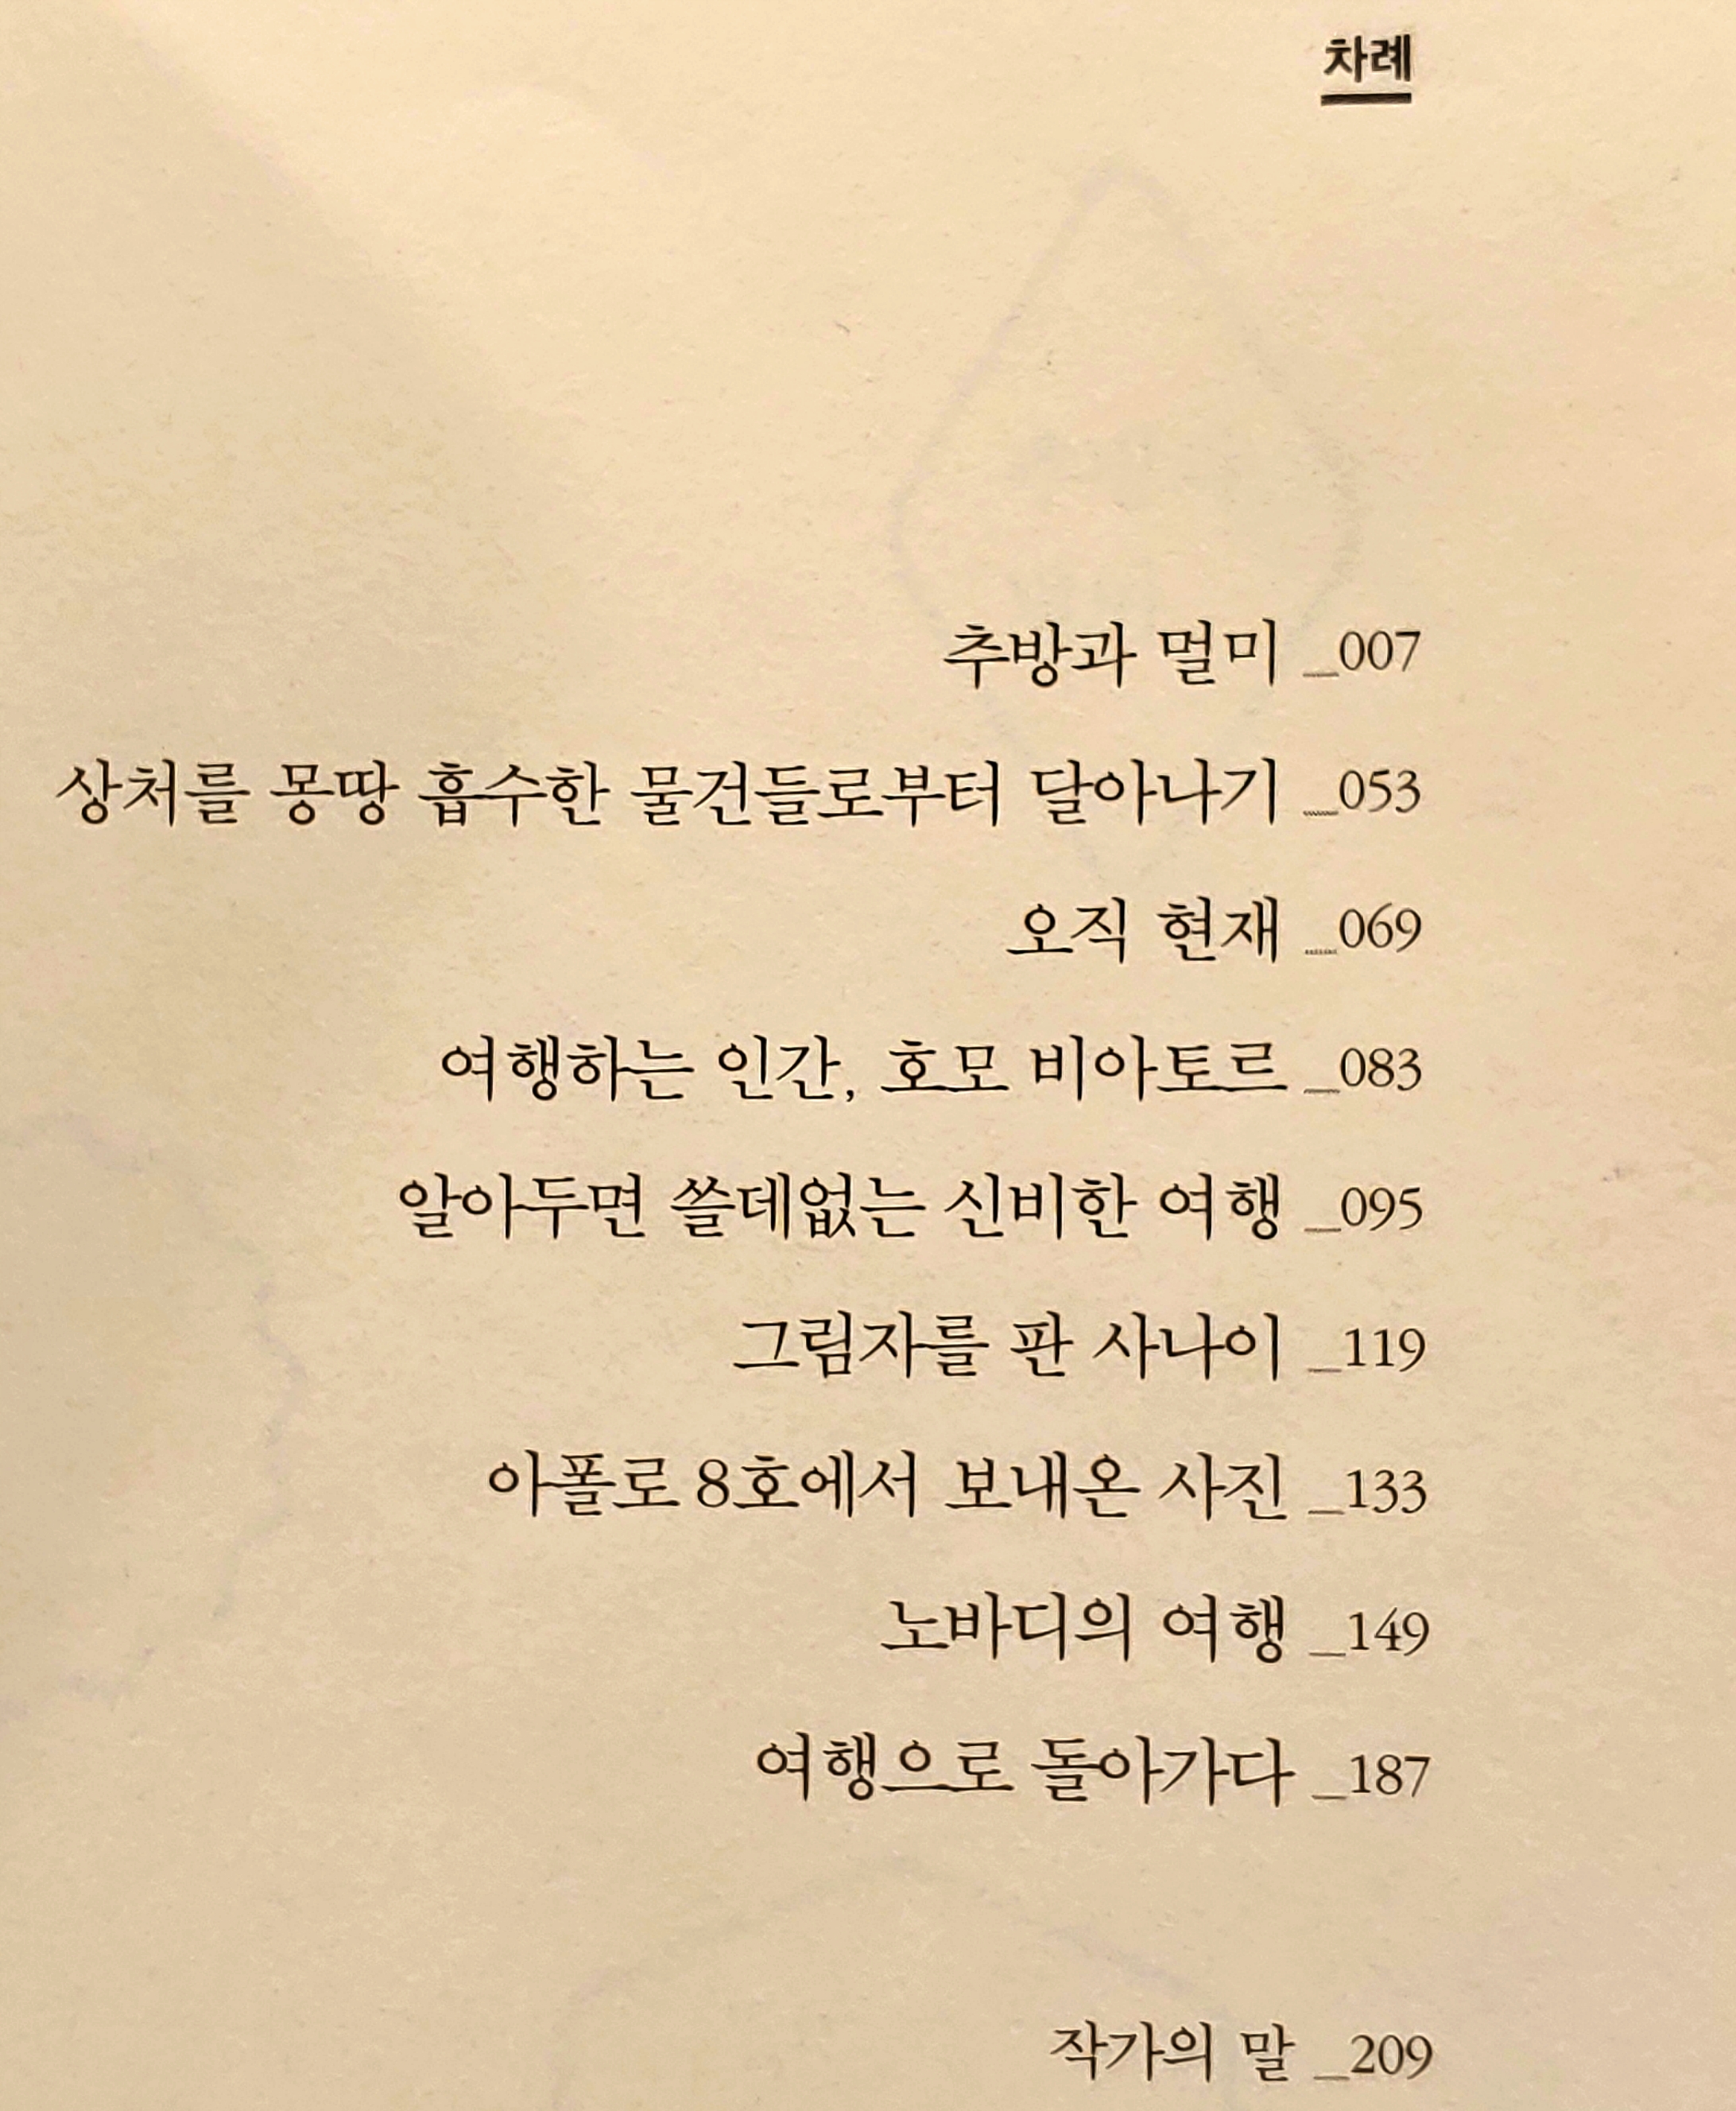 차례
추방과 멀미 _007
상처를 몽땅 흡수한 물건들로부터 달아나기 _053
오직 현재 _069
여행하는 인간, 호모 비아토르 _083
알아두면 쓸데없는 신비한 여행 _095
그림자를 판 사나이 _119
아폴로 8호에서 보내온 사진 _133
노바디의 여행 _149
여행으로 돌아가다 _187
작가의 말 _209